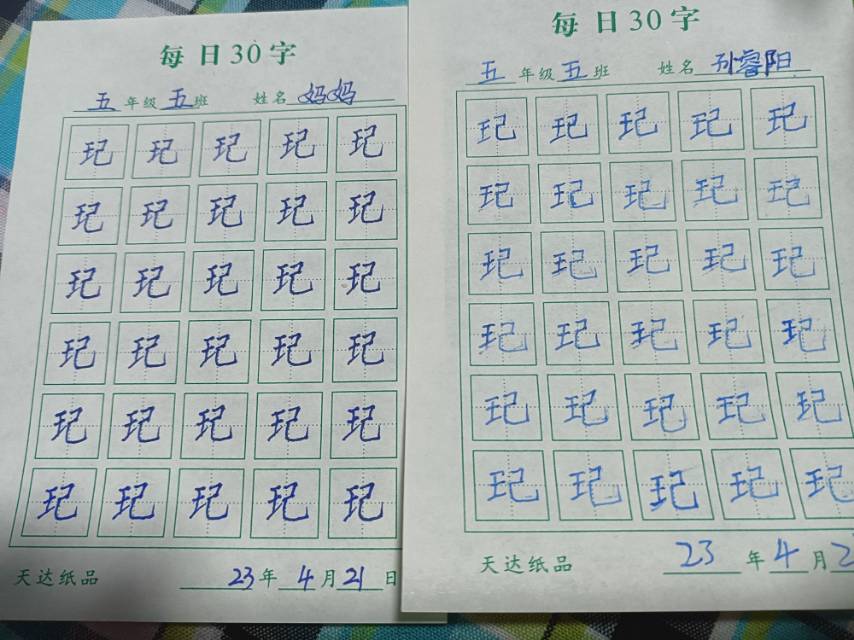 每日30字
五年级五班 姓名 妈妈
玘 玘 玘 玘 玘
玘 玘 玘 玘 玘
玘 玘 玘 玘 玘
玘 玘 玘 玘 玘
玘 玘 玘 玘 玘
玘 玘 玘 玘 玘
天达纸品 23年4月21日
每日30字
五年级五班 姓名 孙睿阳
玘 玘 玘 玘 玘
玘 玘 玘 玘 玘
玘 玘 玘 玘 玘
玘 玘 玘 玘 玘
玘 玘 玘 玘 玘
玘 玘 玘 玘 玘
天达纸品 23年4月